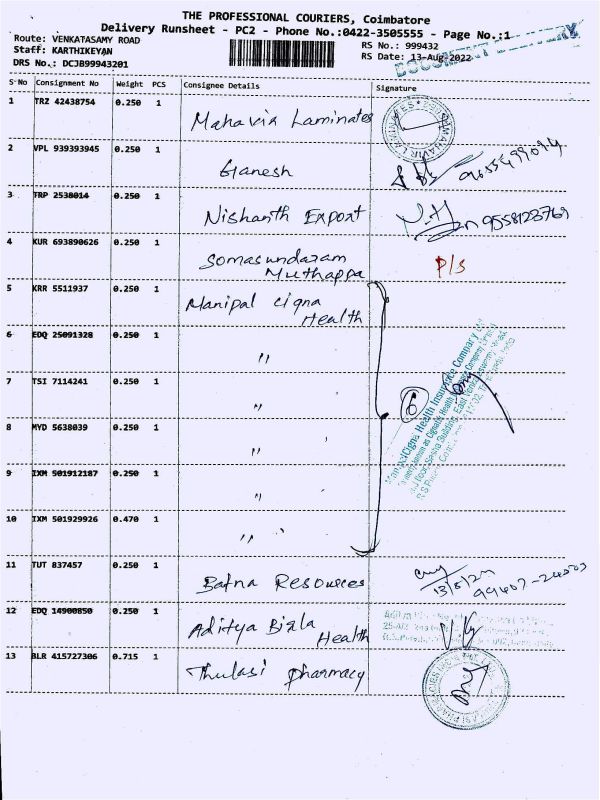 THE PROFESSIONAL COURIERS, Coimbatore
Delivery Runsheet - PC2 - Phone No.:0422-3505555 - Page No.:1
Route: VENKATASAMY ROAD
RS No.: 999432
Staff: KARTHIKEYAN
RS Date: 13-Aug-2022
DRS No.: DCJB99943201
DOCUMENT DELIVERY
S No Consignment No Weight PCS Consignee Details Signature
1 TRZ 42438754 0.250 1 Mahavia Laminates
2 VPL 939393945 0.250 1 Ganesh
3 TRP 2538014 0.250 1 Nishanth Export 9558123769
4 KUR 693890626 0.250 1 Somasundaram Muthappa P/S
5 KRR 5511937 0.250 1 Manipal Cigna Health
6 EDQ 25091328 0.250 1 "
7 TSI 7114241 0.250 1 "
8 MYD 5638039 0.250 1 "
6
ManipalCigna Health Insurance Company
9 IXM 501912187 0.250 1 "
10 IXM 501929926 0.470 1 "
11 TUT 837457 0.250 1 Bafna Resources
13/8/22
12 EDQ 14900850 0.250 1 Aditya Birla Health
13 BLR 415727306 0.715 1 Thulasi Pharmacy